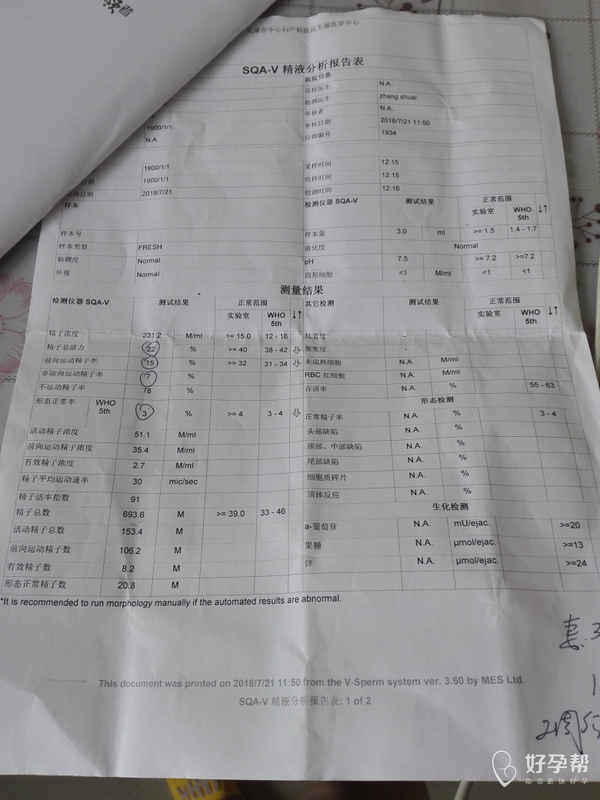 领者
天津市中心妇产科医院生殖医学中心
SQA-V 精液分析报告表
医院信息
送检医生 N.A.
检测医生 zhang shuai
审核者 N.A.
审核日期 2018/7/21 11:50
仪器编号 1934
1900/1/1
N.A
1900/1/1
1900/1/1
2018/7/21
采样时间 12:15
收样时间 12:15
检测时间 12:16
样本
检测仪器 SQA-V 测试结果 正常范围
实验室 WHO 5th ↓↑
样本号
样本类型 FRESH
粘稠度 Normal
外观 Normal
样本量 3.0 ml >= 1.5 1.4 - 1.7
液化度 Normal
pH 7.5 >= 7.2 >=7.2
圆形细胞 <1 M/ml <1 <1
测量结果
检测仪器 SQA-V 测试结果 正常范围
实验室 WHO 5th ↓↑
精子浓度 231.2 M/ml >= 15.0 12 - 16
精子总活力 22 % >= 40 38 - 42 ⇩
前向运动精子率 15 % >= 32 31 - 34 ⇩
非前向运动精子率 7 %
不运动精子率 78 %
形态正常率 WHO 5th 3 % >= 4 3 - 4 ⇩
活动精子浓度 51.1 M/ml
前向运动精子浓度 35.4 M/ml
有效精子浓度 2.7 M/ml
精子平均运动速率 30 mic/sec
精子活率指数 91
精子总数 693.6 M >= 39.0 33 - 46
活动精子总数 153.4 M
前向运动精子数 106.2 M
有效精子数 8.2 M
形态正常精子数 20.8 M
其它检测 测试结果 正常范围
实验室 WHO 5th ↓↑
粘着度 -
聚集度 -
未成熟细胞 N.A. M/ml
RBC 红细胞 N.A. M/ml
存活率 N.A. % 55 - 63
形态检测
正常精子率 N.A. % 3 - 4
头部缺陷 N.A. %
颈部、中部缺陷 N.A. %
尾部缺陷 N.A. %
细胞质碎片 N.A. %
顶体反应 N.A. %
生化检测
a-葡萄苷 N.A. mU/ejac. >=20
果糖 N.A. µmol/ejac. >=13
锌 N.A. µmol/ejac. >=24
*It is recommended to run morphology manually if the automated results are abnormal.
This document was printed on 2018/7/21 11:50 from the V-Sperm system ver. 3.60 by MES Ltd.
SQA-V 精液分析报告表: 1 of 2
好孕帮
助您更快好孕